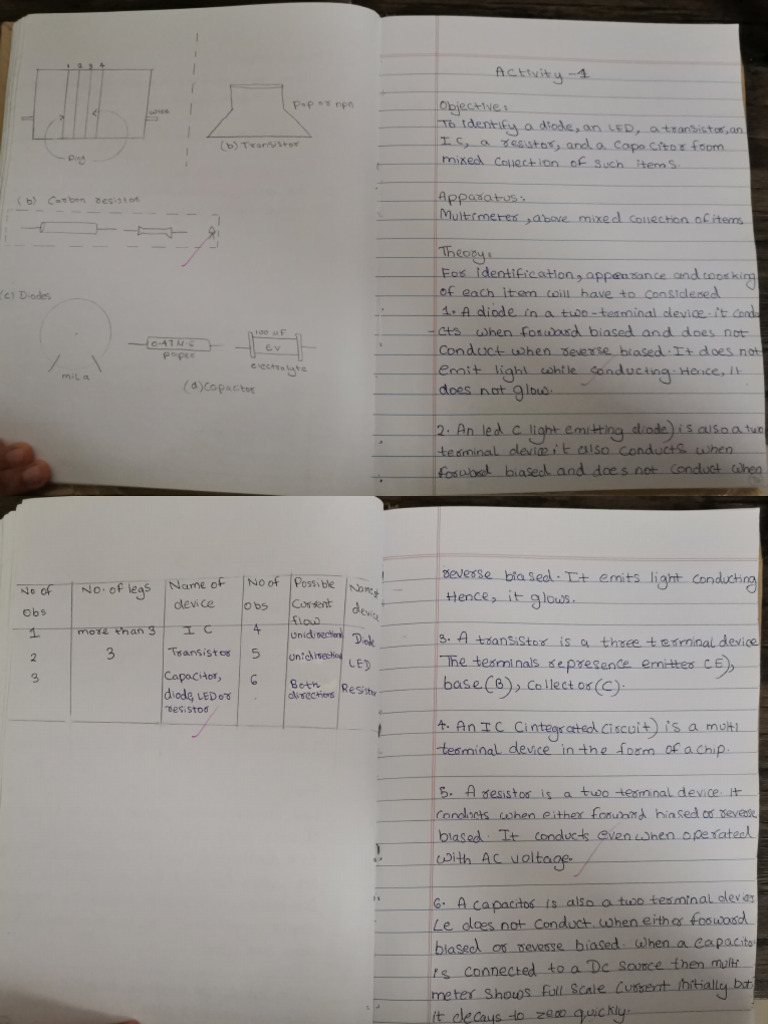 1 2 3 4
wires
pin
pnp or npn
(b) Transistor
(b) Carbon resistor
(c) Diodes
mila
paper
100 uF
6V
electrolyte
(d) Capacitor
Activity-1
Objective:
To identify a diode, an LED, a transistor, an
IC, a resistor, and a capacitor from
mixed collection of such items.
Apparatus:
Multimeter, above mixed collection of items
Theory:
For identification, appearance and working
of each item will have to considered
1. A diode in a two-terminal device. it condu
-cts when forward biased and does not
conduct when reverse biased. It does not
emit light while conducting. Hence, it
does not glow.
2. An led (light emitting diode) is also a two
terminal device it also conducts when
forward biased and does not conduct when
No of obs | No. of legs | Name of device | No of obs | Possible current flow | Name of device
1 | more than 3 | IC | 4 | unidirectional | Diode
2 | 3 | Transistor | 5 | unidirection | LED
3 | Capacitor, diode, LED or resistor | 6 | Both directions | Resistor
reverse biased. It emits light conducting
Hence, it glows.
3. A transistor is a three terminal device
The terminals represence emitter (E),
base(B), collector(C).
4. An IC (integrated circuit) is a multi
terminal device in the form of a chip.
5. A resistor is a two terminal device. It
conducts when either forward biased or reverse
biased. It conducts even when operated
with AC voltage.
6. A capacitor is also a two terminal device
Le does not conduct when either forward
biased or reverse biased. When a capacitor
is connected to a Dc source then multi
meter shows full scale current initially but
it decays to zero quickly.